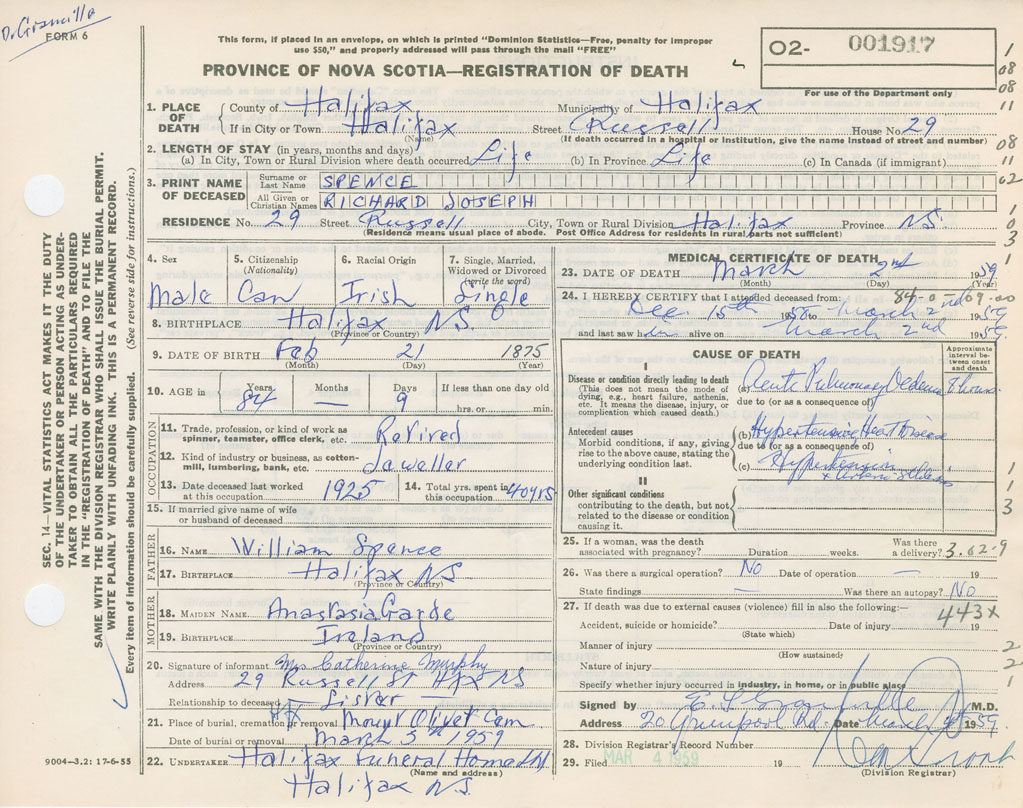 Dr Granville
FORM 6
This form, if placed in an envelope, on which is printed "Dominion Statistics—Free, penalty for improper
use $50," and properly addressed will pass through the mail "FREE"
PROVINCE OF NOVA SCOTIA—REGISTRATION OF DEATH
O2- 001917
For use of the Department only
1
08
08
11
08
11
02
1
0
3
1
1. PLACE OF DEATH
County of Halifax Municipality of Halifax
If in City or Town Halifax Street Russell House No. 29
(Name) (If death occurred in a hospital or institution, give the name instead of street and number)
2. LENGTH OF STAY (in years, months and days)
(a) In City, Town or Rural Division where death occurred Life (b) In Province Life (c) In Canada (if immigrant)
3. PRINT NAME OF DECEASED
Surname or Last Name SPENCE
All Given or Christian Names RICHARD JOSEPH
RESIDENCE No. 29 Street Russell City, Town or Rural Division Halifax Province N.S.
(Residence means usual place of abode. Post Office Address for residents in rural parts not sufficient)
4. Sex Male
5. Citizenship (Nationality) Can
6. Racial Origin Irish
7. Single, Married, Widowed or Divorced (write the word) Single
8. BIRTHPLACE Halifax N.S.
(Province or Country)
9. DATE OF BIRTH Feb 21 1875
(Month) (Day) (Year)
10. AGE in Years 84 Months — Days 9 If less than one day old
hrs. or min.
OCCUPATION
11. Trade, profession, or kind of work as
spinner, teamster, office clerk, etc. Retired
12. Kind of industry or business, as cotton-
mill, lumbering, bank, etc. Jaweller
13. Date deceased last worked
at this occupation 1925
14. Total yrs. spent in
this occupation 40 yrs
15. If married give name of wife
or husband of deceased
FATHER
16. NAME William Spence
17. BIRTHPLACE Halifax NS
(Province or Country)
MOTHER
18. MAIDEN NAME Anastasia Garde
19. BIRTHPLACE Ireland
(Province or Country)
20. Signature of informant Mrs Catherine Murphy
Address 29 Russell St Hfx NS
Relationship to deceased Sister
21. Place of burial, cremation or removal Hfx Mount Olivet Cem
Date of burial or removal March 5th 1959
22. UNDERTAKER Halifax Funeral Home Ltd
(Name and address)
Halifax N.S.
9004—3.2: 17-6-55
MEDICAL CERTIFICATE OF DEATH
23. DATE OF DEATH March 2nd 1959
(Month) (Day) (Year)
84-0 09.00
24. I HEREBY CERTIFY that I attended deceased from:
Dec 15th 1958 to March 2nd 1959
and last saw him alive on March 2nd 1959
CAUSE OF DEATH
Approximate interval between onset and death
I
Disease or condition directly leading to death
(This does not mean the mode of
dying, e.g., heart failure, asthenia,
etc. It means the disease, injury, or
complication which caused death.)
(a) Acute Pulmonary Oedema 8 hours
due to (or as a consequence of)
Antecedent causes
Morbid conditions, if any, giving
rise to the above cause, stating the
underlying condition last.
(b) Hypertensive Heart Disease
due to (or as a consequence of)
(c) Hypertension
II
Other significant conditions
contributing to the death, but not
related to the disease or condition
causing it.
1
1
3
25. If a woman, was the death
associated with pregnancy? Duration weeks. Was there
a delivery? 3.62.9
26. Was there a surgical operation? No Date of operation — 19
State findings — Was there an autopsy? No
27. If death was due to external causes (violence) fill in also the following:—
443x
Accident, suicide or homicide? Date of injury 19
(State which)
Manner of injury
2
(How sustained)
Nature of injury
2
Specify whether injury occurred in industry, in home, or in public place
1
Signed by E. F. Granville M.D.
Address Date March 1959
28. Division Registrar's Record Number
29. Filed MAR 4 1959 19
(Division Registrar)
SEC. 14—VITAL STATISTICS ACT MAKES IT THE DUTY
OF THE UNDERTAKER OR PERSON ACTING AS UNDER-
TAKER TO OBTAIN ALL THE PARTICULARS REQUIRED
IN THE "REGISTRATION OF DEATH" AND TO FILE THE
SAME WITH THE DIVISION REGISTRAR WHO SHALL ISSUE THE BURIAL PERMIT.
WRITE PLAINLY WITH UNFADING INK. THIS IS A PERMANENT RECORD.
Every item of information should be carefully supplied. (See reverse side for instructions.)